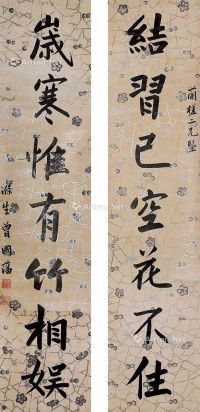 結習已空花不住
二兄
歲寒惟有竹相娛
滌生曾國藩